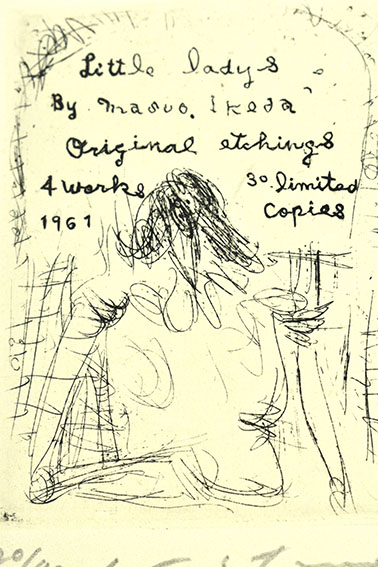 Little ladys
By masuo. Ikeda
Original etchings
4 works 30 limited
1961 copies